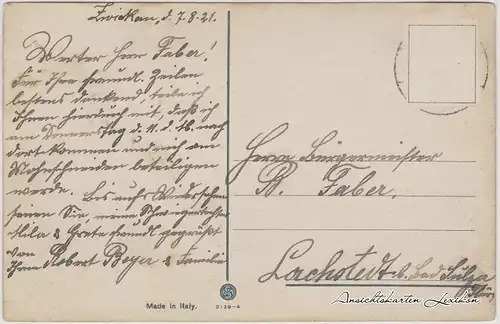 Zwickau, d. 7.8.21.
Werter Herr Faber!
Für Ihre freundl. Zeilen
bestens dankend, teile ich
Ihnen hierdurch mit, daß ich
am Donnerstag d. 11. d. M. nach
dort kommen und mich am
beteiligen
werde. Bis aufs Wiedersehen
seien Sie, meine Schwiegertochter
Mila & Grete freundl. gegrüßt
von
Ihrem Robert Beyer & Familie
Herrn Bürgermeister
B. Faber.
Lachstedt b. Bad Sulza
Made in Italy.
2129-4
Ansichtskarten Lexikon